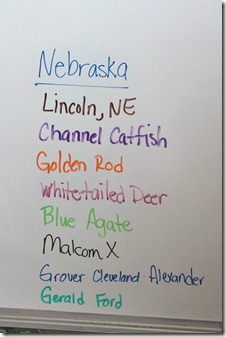 Nebraska
Lincoln, NE
Channel Catfish
Golden Rod
Whitetailed Deer
Blue Agate
Malcom X
Grover Cleveland Alexander
Gerald Ford